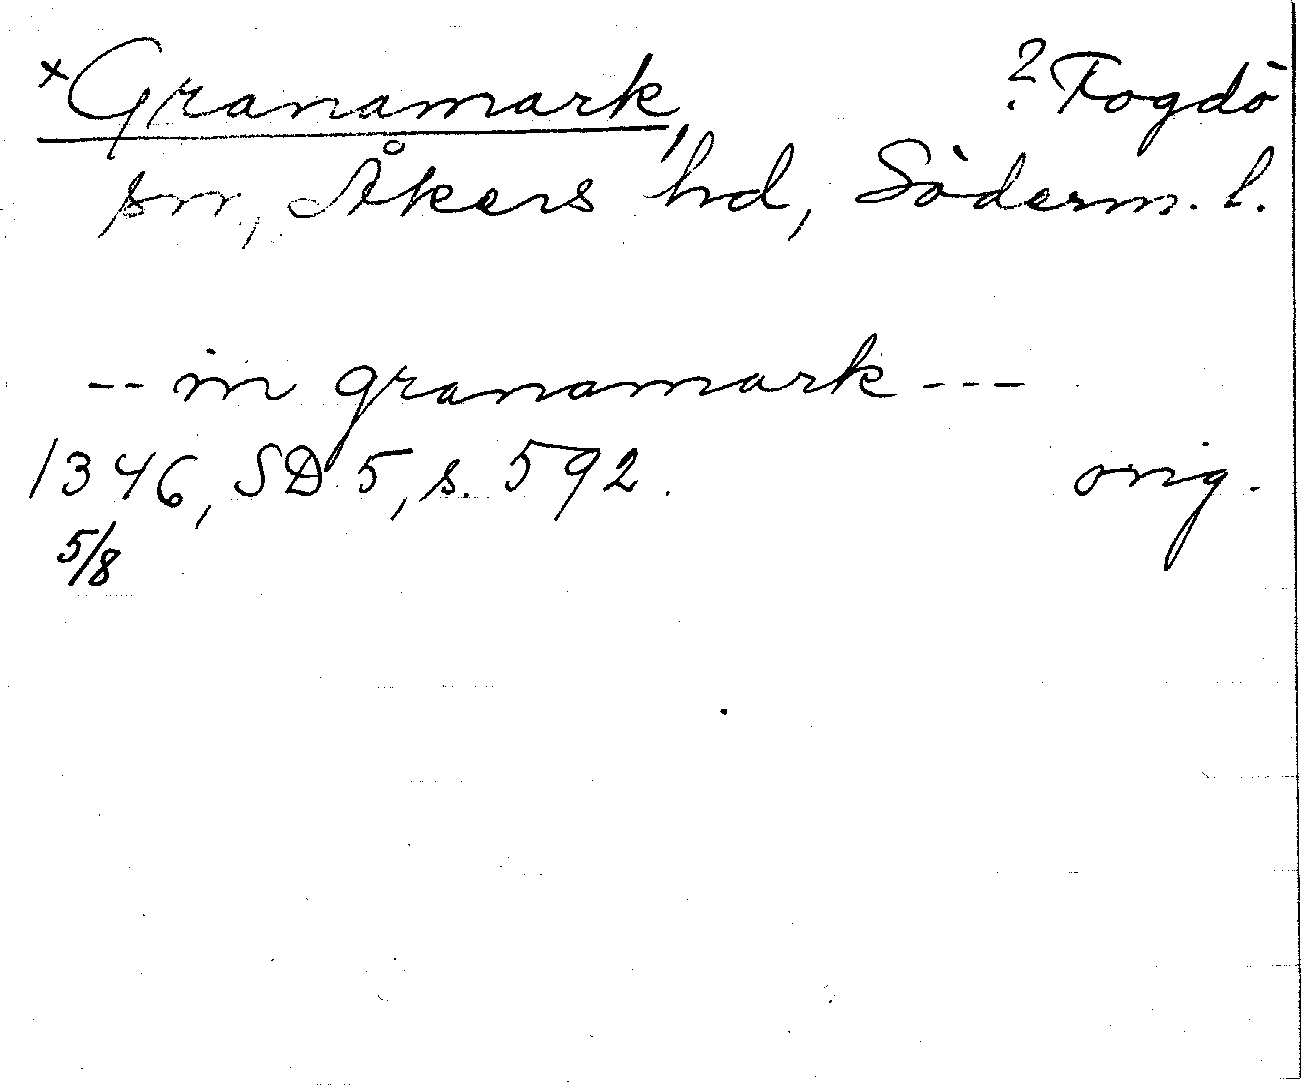 ×Granamark, ? Fogdö
sn, Åkers hd, Söderm. l.
-- in granamark ---
1346, SD 5, s. 592. orig.
5/8